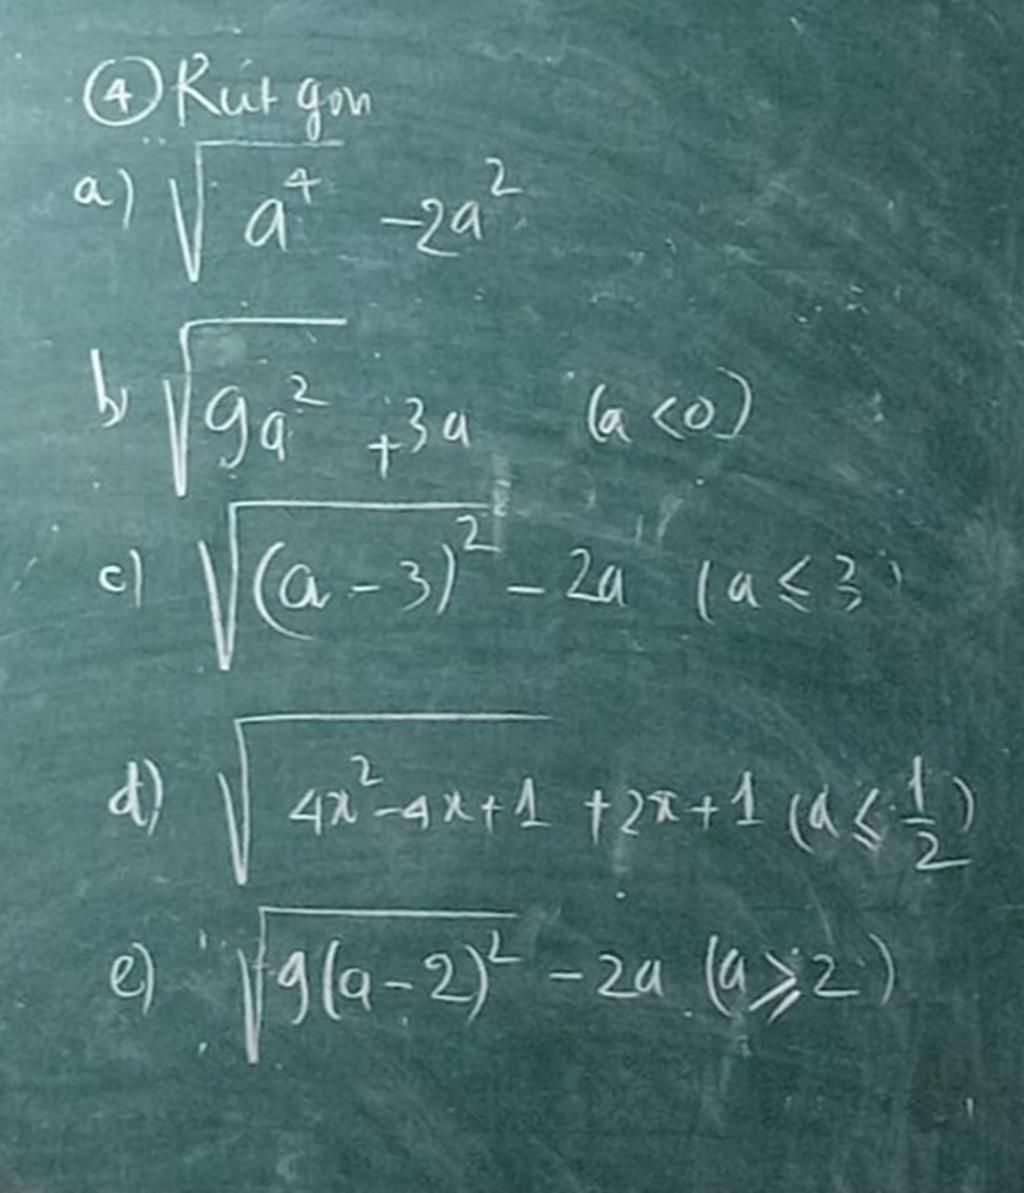 ④ Rút gọn
a) √a⁴ -2a²
b) √9a² +3a (a <0)
c) √(a-3)² - 2a (a ≤ 3)
d) √4x²-4x+1 +2x+1 (a ≤ 1/2)
e) √9(a-2)² -2a (a ≥ 2)